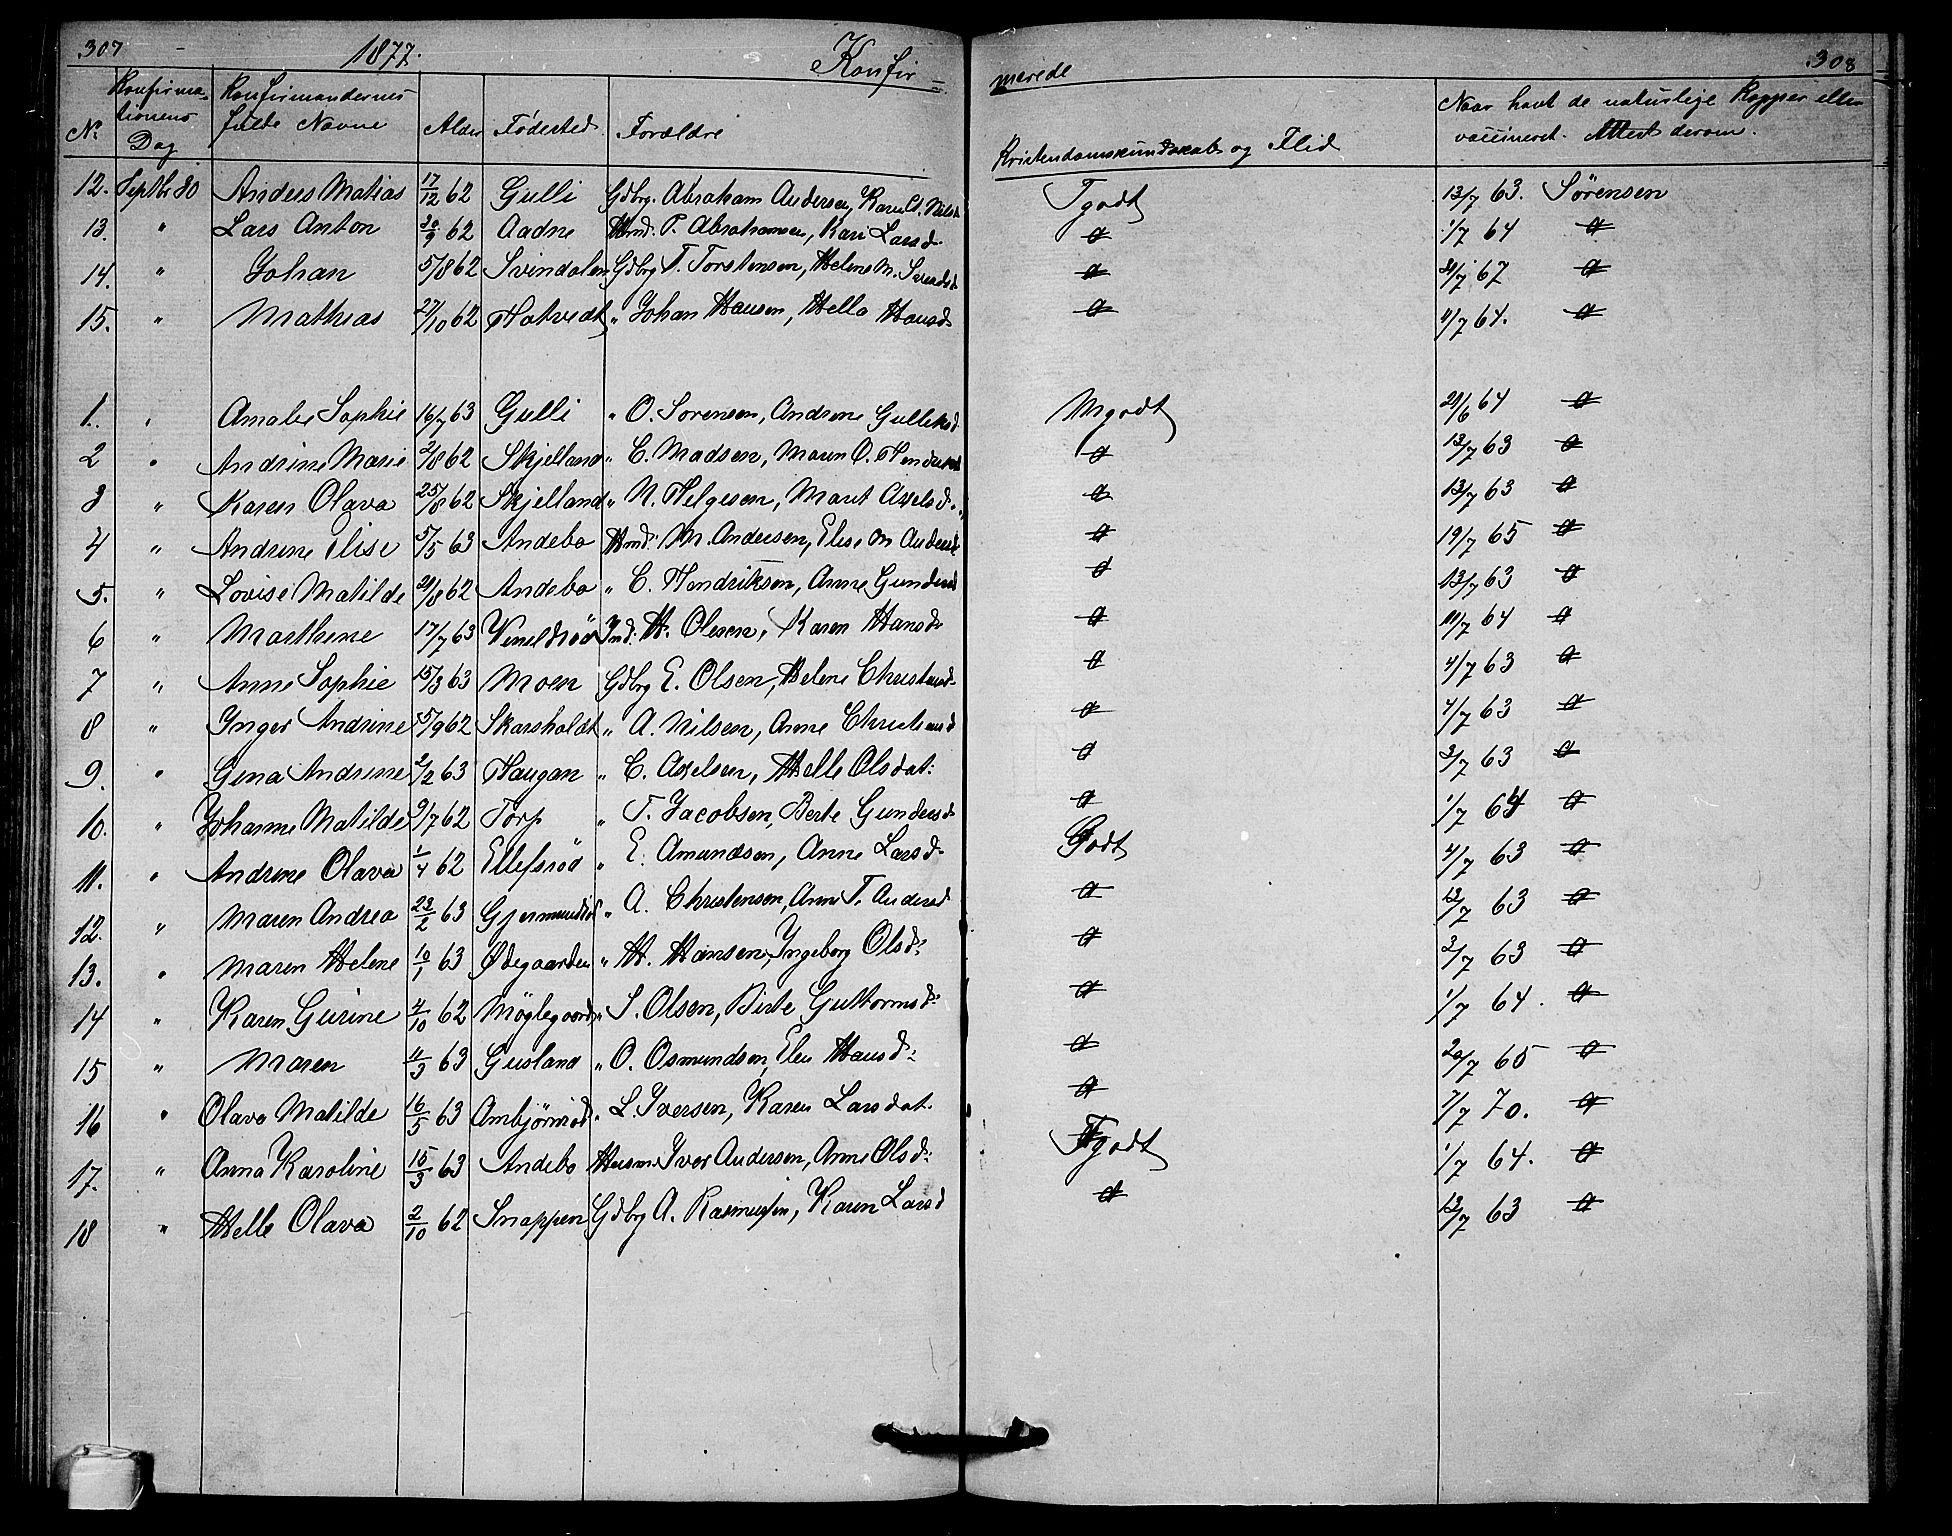 307 1877. Konfir= merede 308
No Konfirmationens Dag Konfirmandernes fulde Navne Alder Fødested Forældre Kristendomskundskab og Flid Naar havt de naturlige Kopper eller vaccineret. Attest derom.
12. Septbr 30 Anders Matias 17/12 62 Gulli Gdbrg. Abraham Andersen, Tgodt 13/7 63. Sørensen
13. " Lars Anton 30/9 62 Aadne Hmd. P. Abrahamsen, Kari Larsd. d 1/7 64 d
14. " Johan 5/8 62 Svindalen Gdbrg T. Torstensen, Helene M. d 67 d
15. " Mathias 27/10 62 Hotvedt " Johan Hansen, Helle Hansd. d 4/7 64. d
1. " Amalie Sophie 16/7 63 Gulli " O. Sørensen, Andrine Gulleksd Mgodt 64 d
2 " Andrine Marie 2/8 62 Skjelland " C. Madsen, Maren O. d 13/7 63 d
3 " Karen Olava 25/8 62 Skjelland " N. Helgesen, Marit Axelsd. d 13/7 63 d
4 " Andrine Elise 5/5 63 Andebo Hmd. M. Andersen, Elise M Andersd d 19/7 65 d
5. " Lovise Matilde 21/8 62 Andebo " C. Hendriksen, Anne Gundersd d 13/7 63 d
6 " Marthine 17/7 63 Ind. H. Olesen, Karen Hansd. d 11/7 64 d
7 " Anne Sophie 15/3 63 Moen Gdbrg E. Olsen, Helene Christensd. d 4/7 63 d
8 " Inger Andrine 15/9 62 Skarsholdt " A. Nilsen, Anne Christensd d 4/7 63 d
9. " Gina Andrine 2/2 63 Haugan " C. Axelsen, Helle Olsdat. d 3/7 63 d
10. " Johanne Matilde 9/7 62 Torp " T. Jacobsen, Berte Gundersd. d 1/7 64 d
11. " Andrine Olava 1/4 62 Ellefsrød " E. Amundsen, Anne Larsd. Godt 4/7 63 d
12. " Maren Andrea 23/2 63 Gjermundrød " A. Christensen, Anne T. Andersd d 13/7 63 d
13. " Maren Helene 10/1 63 Ødegaarden " H. Hansen, Ingeborg Olsd. d 3/7 63 d
14 " Karen Gurine 4/10 62 Møglegaard " S. Olsen, Birte Guttormsd. d 1/7 64. d
15 " Maren 4/3 63 Gusland " O. Osmundsen, Elen Hansd. d 20/7 65 d
16 " Olava Matilde 16/5 63 Ambjørnrød " L. Iversen, Karen Larsdat. d 7/7 70. d
17. " Anna Karoline 15/3 63 Andebo Husm. Iver Andersen, Anne Olsd. Tgodt 1/7 64. d
18 " Helle Olava 2/10 62 Snappen Gdbrg A. Rasmussen, Karen Larsd d 13/7 63 d